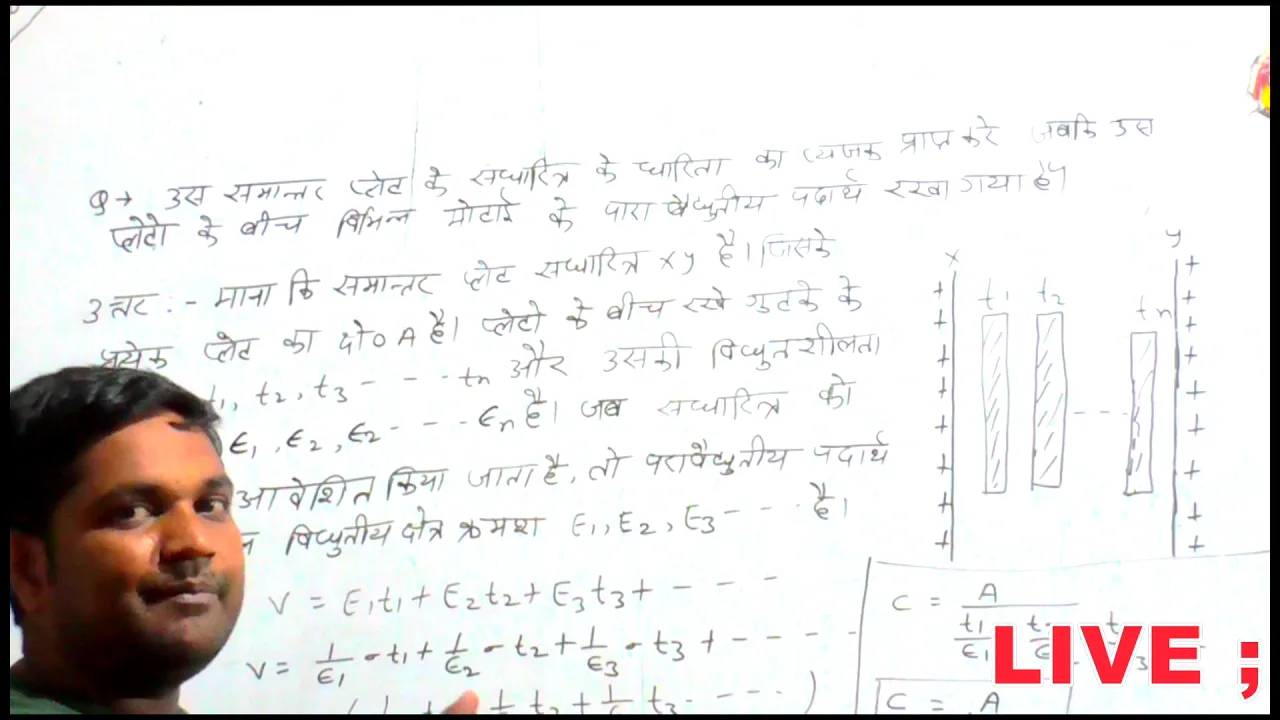 Q → उस समान्तर प्लेट के संधारित्र के धारिता का व्यंजक प्राप्त करे जबकि उस
प्लेटो के बीच विभिन्न मोटाई के पारा वैधुतीय पदार्थ रखा गया है?
उत्तर :- माना कि समान्तर प्लेट संधारित्र xy है। जिसके
प्रत्येक प्लेट का क्षे० A है। प्लेटो के बीच रखे गुटके के
t1, t2, t3 - - - tn और उसकी विधुतशीलता
ϵ1, ϵ2, ϵ2 - - - ϵn है। जब संधारित्र को
आवेशित किया जाता है, तो परावैधुतीय पदार्थ
विधुतीय क्षेत्र क्रमश E1, E2, E3 - - - है।
V = E1t1 + E2t2 + E3t3 + - - -
V = 1/ϵ1 - t1 + 1/ϵ2 - t2 + 1/ϵ3 - t3 + - - - -
t2 + t3 - - - - )
x y
t1 t2 tn
+ + + + + + + +
+ + + + + + + + +
C = A
t1/ϵ1
C = A
LIVE ;